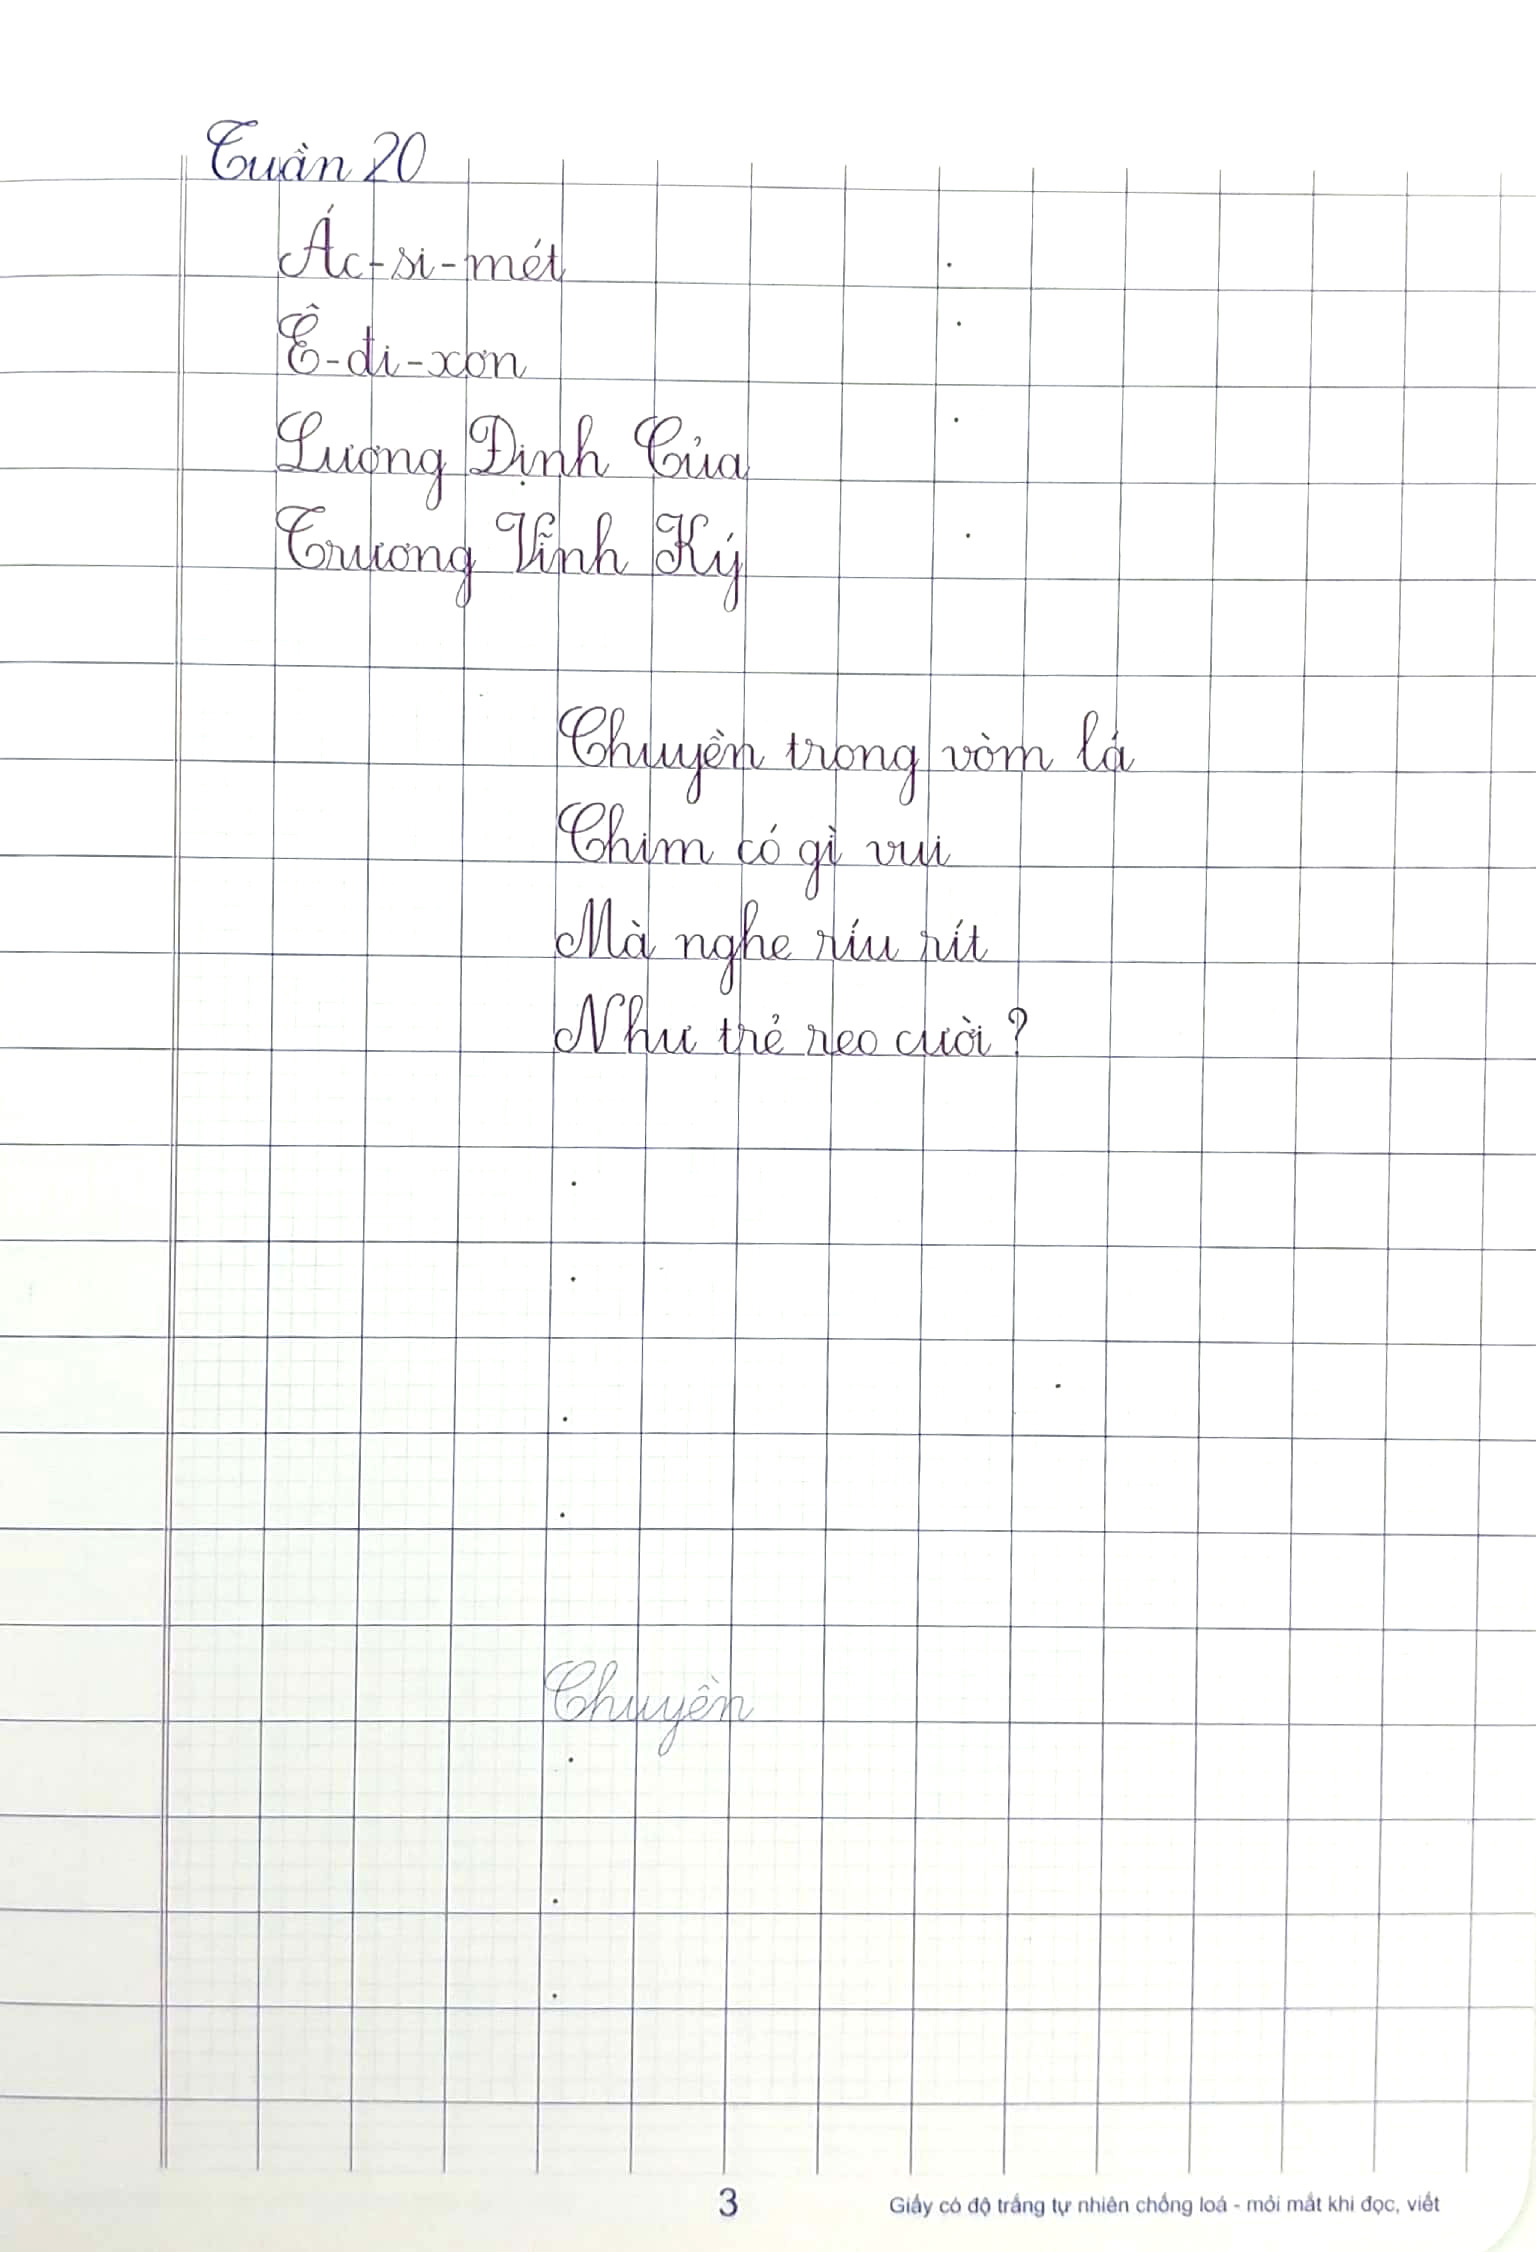 Tuần 20
Ác-si-mét
Ê-đi-xơn
Lương Định Của
Trương Vĩnh Ký
Chuyền trong vòm lá
Chim có gì vui
Mà nghe ríu rít
Như trẻ reo cười?
Chuyền
3
Giấy có độ trắng tự nhiên chống loá - mỏi mắt khi đọc, viết